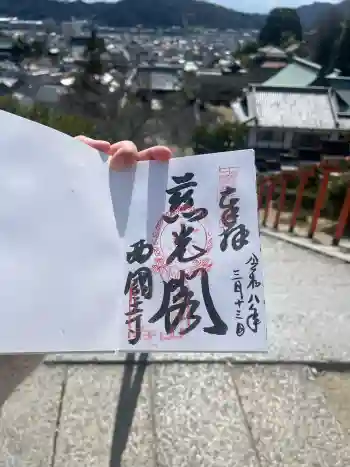 奉拝
令和八年
三月十三日
慈光閣
西国寺